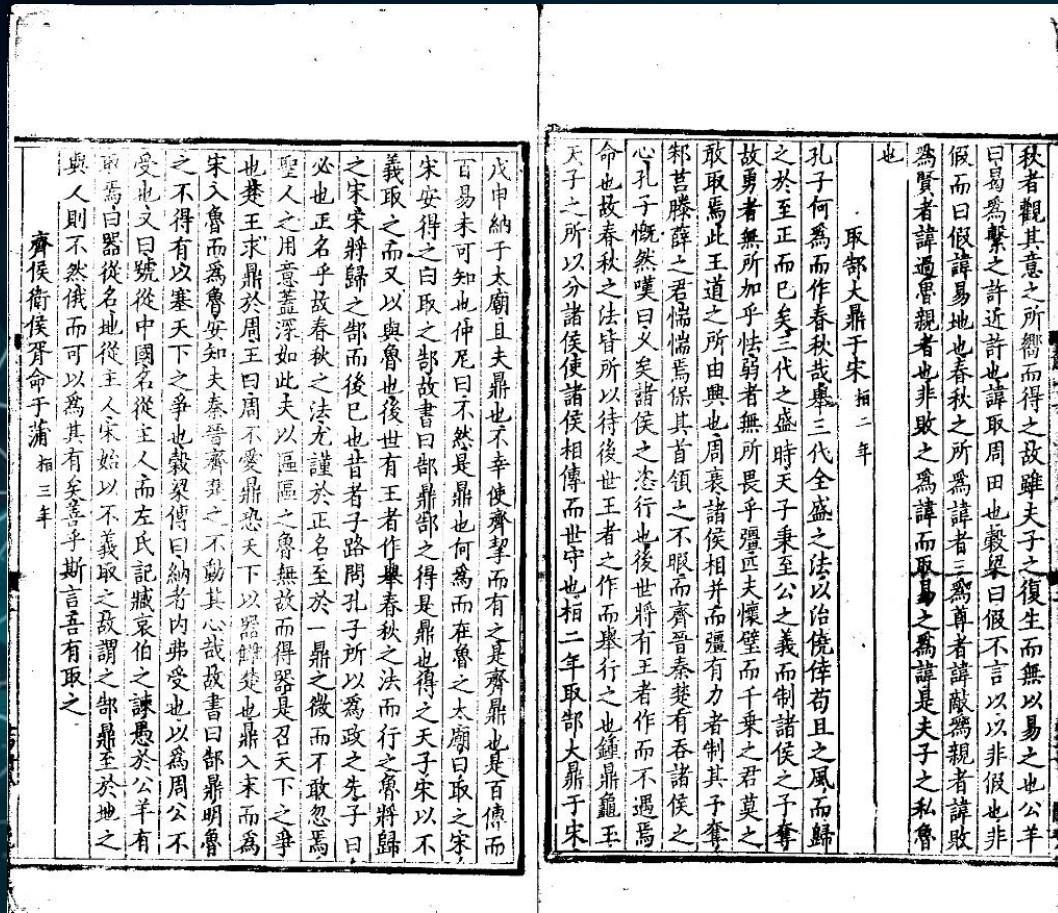 秋者觀其意之所嚮而得之故雖夫子之復生而無以易之也公羊
曰曷爲繫之許近許也諱取周田也穀梁曰假不言以以非假也非
假而曰假諱易地也春秋之所爲諱者三爲尊者諱敵爲親者諱敗
爲賢者諱過魯親者也非敗之爲諱而取易之爲諱是夫子之私魯
也
取郜大鼎于宋 桓二年
孔子何爲而作春秋哉舉三代全盛之法以治僥倖苟且之風而歸
之於至正而已矣三代之盛時天子秉至公之義而制諸侯之予奪
故勇者無所加乎怯弱者無所畏乎彊匹夫懷璧而千乗之君莫之
敢取焉此王道之所由興也周衰諸侯相并而彊有力者制其予奪
邾莒滕薛之君惴惴焉保其首領之不暇而齊晉秦楚有吞諸侯之
心孔子慨然嘆曰乂矣諸侯之恣行也後世將有王者作而不遇焉
命也故春秋之法皆所以待後世王者之作而舉行之也鍾鼎龜玉
天子之所以分諸侯使諸侯相傳而世守也桓二年取郜大鼎于宋
戊申納于太廟且夫鼎也不幸使齊挈而有之是齊鼎也是百傳而
百易未可知也仲尼曰不然是鼎也何爲而在魯之太廟曰取之宋
宋安得之曰取之郜故書曰郜鼎郜之得是鼎也得之天子宋以不
義取之而又以與魯也後世有王者作舉春秋之法而行之魯將歸
之宋宋將歸之郜而後已也昔者子路問孔子所以爲政之先子曰
必也正名乎故春秋之法尤謹於正名至於一鼎之微而不敢忽焉
聖人之用意蓋深如此夫以區區之魯無故而得器是召天下之爭
也楚王求鼎於周王曰周不愛鼎恐天下以器讎楚也鼎入宋而爲
宋入魯而爲魯安知夫秦晉齊楚之不動其心哉故書曰郜鼎明魯
之不得有以塞天下之爭也穀梁傳曰納者内弗受也以爲周公不
受也又曰號從中國名從主人而左氏記臧哀伯之諫愚於公羊有
取焉曰器從名地從主人宋始以不義取之故謂之郜鼎至於地之
與人則不然俄而可以爲其有矣善乎斯言吾有取之
齊侯衛侯胥命于蒲 桓三年